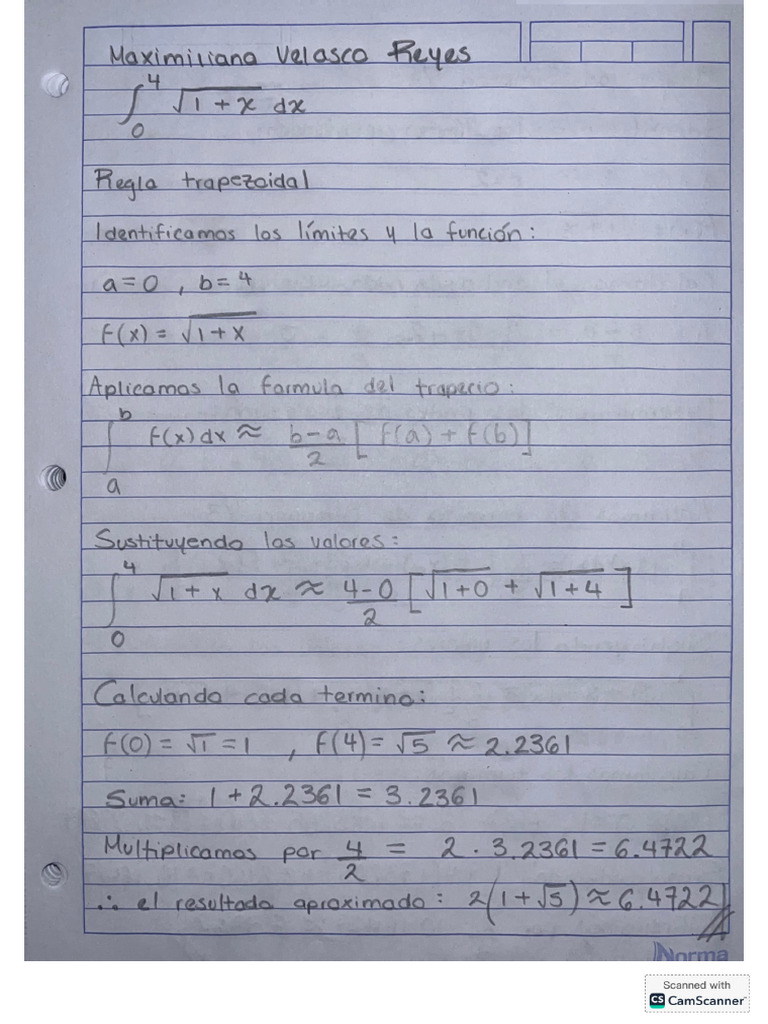 Maximiliano Velasco Reyes
∫₀⁴ √(1+x) dx
Regla trapezoidal
Identificamos los límites y la función:
a=0 , b=4
f(x) = √(1+x)
Aplicamos la formula del trapecio:
∫ₐᵇ f(x)dx ≈ (b-a)/2 [f(a) + f(b)]
Sustituyendo los valores:
∫₀⁴ √(1+x) dx ≈ (4-0)/2 [√(1+0) + √(1+4)]
Calculando cada termino:
f(0) = √1 = 1 , f(4) = √5 ≈ 2.2361
Suma: 1 + 2.2361 = 3.2361
Multiplicamos por 4/2 = 2 · 3.2361 = 6.4722
∴ el resultado aproximado: 2(1+√5) ≈ 6.4722
Norma
Scanned with
CS CamScanner